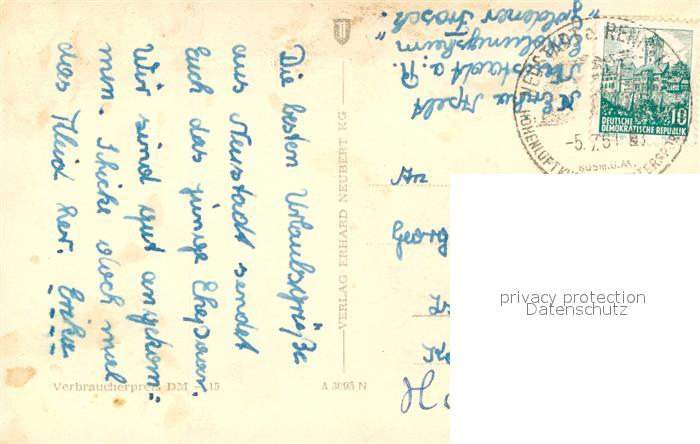 Die besten Urlaubsgrüße
aus Neustadt sendet
Euch das junge Ehepaar.
Wir sind gut angekom=
men. Schicke doch mal
das Kleid her. Erika
VERLAG ERHARD NEUBERT KG
Verbraucherpreis DM -,15
A 3095 N
Neustadt a. R.
Erholungsheim
"Goldener Frosch"
An
DEUTSCHE
DEMOKRATISCHE REPUBLIK
10
-5.7.61
privacy protection
Datenschutz